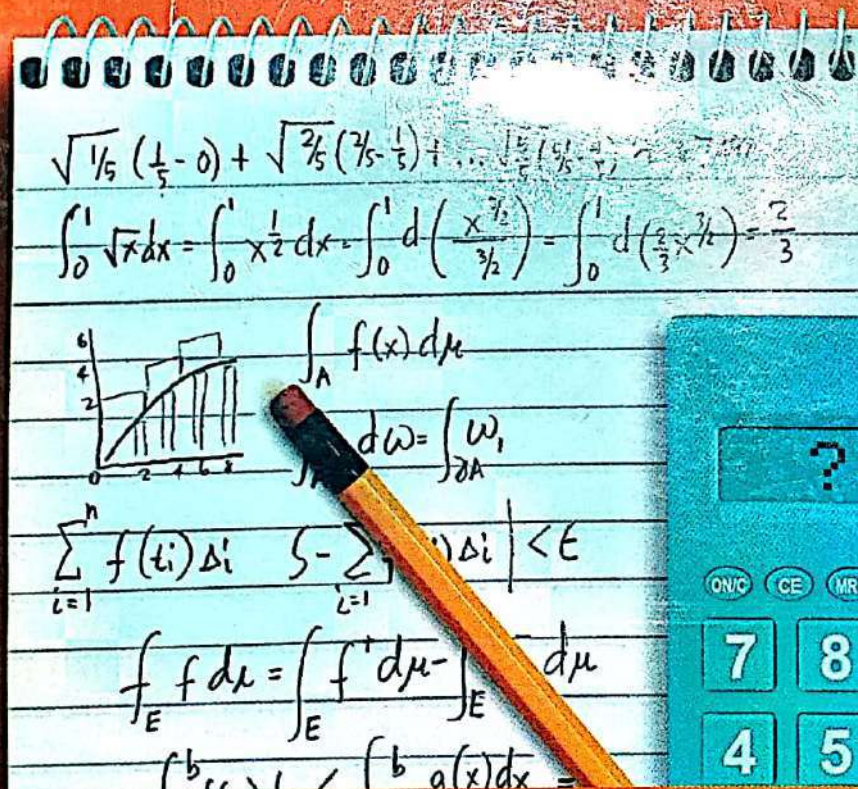 √1/5 (1/5 - 0) + √2/5 (2/5 - 1/5) + ...
∫₀¹ √x dx = ∫₀¹ x^(1/2) dx = ∫₀¹ d(x^(3/2) / (3/2)) = ∫₀¹ d(2/3 x^(3/2)) = 2/3
6
4
2
0 2 4 6 8
∫_A f(x) dμ
dω = ∫_∂A ω,
Σ_{i=1}^n f(ti) Δi S - Σ_{i=1} ) Δi | < ε
∫_E f dμ = ∫_E f⁺ dμ - ∫_E dμ
∫ᵇ ∫ᵇ g(x) dx =
?
ON/C CE MR
7 8
4 5